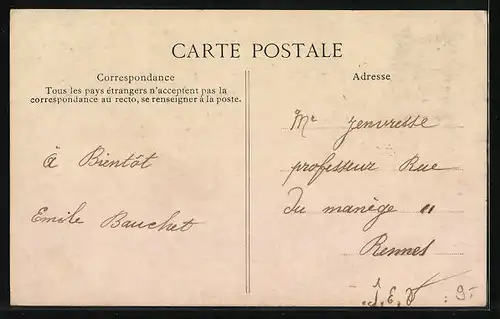 CARTE POSTALE
Correspondance
Tous les pays étrangers n'acceptent pas la
correspondance au recto, se renseigner à la poste.
À Bientôt
Emile Bauchet
Adresse
Mr Jenvresse
professeur Rue
du manège 11
Rennes
: 9.-